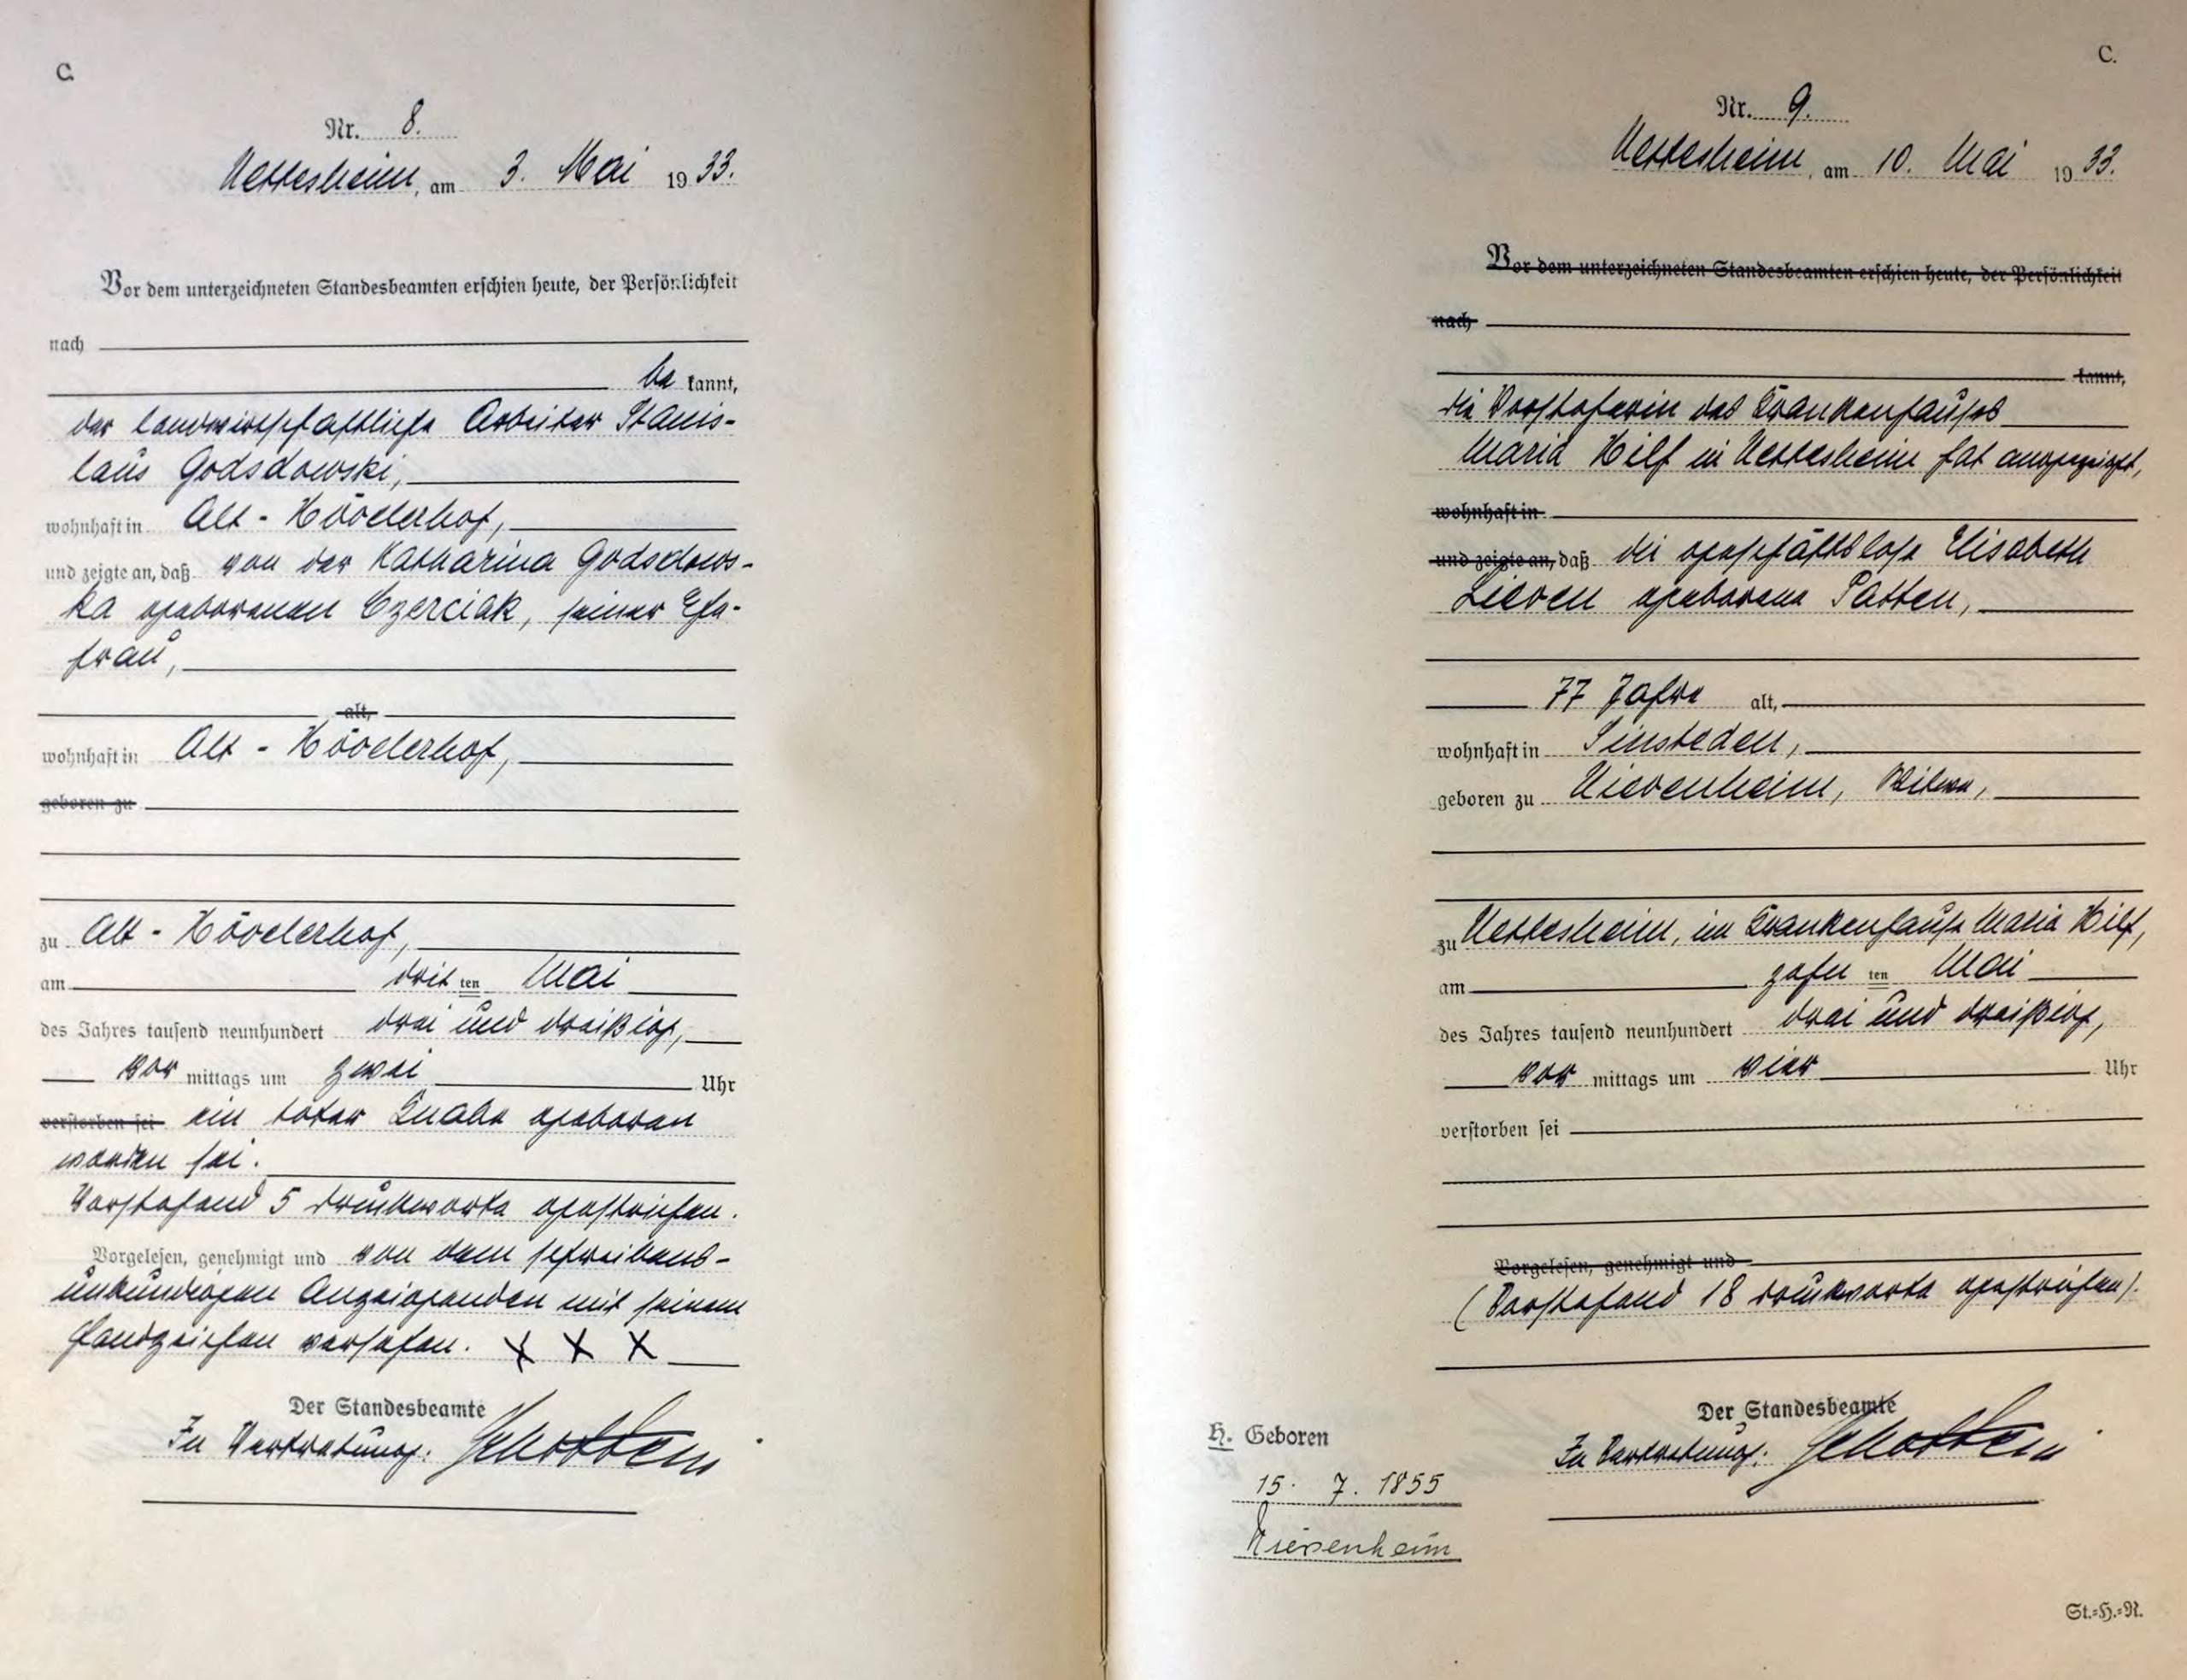 C.
Nr. 8.
Nettesheim, am 3. Mai 1933.
Vor dem unterzeichneten Standesbeamten erschien heute, der Persönlichkeit
nach
be kannt,
der landwirtschaftliche Arbeiter Stanis-
laus Godsdowski,
wohnhaft in Alt-Hövelerhof,
und zeigte an, daß von der Katharina Godsdows-
ka geborenen Czerciak, seiner Ehe-
frau,
alt,
wohnhaft in Alt-Hövelerhof,
geboren zu
zu Alt-Hövelerhof,
am drit ten Mai
des Jahres tausend neunhundert drei und dreißig,
vor mittags um zwei Uhr
verstorben sei ein toter Knabe geboren
worden sei.
Vorstehend 5 Druckworte gestrichen.
Vorgelesen, genehmigt und von dem schreibens-
unkundigen Anzeigenden mit seinem
Handzeichen versehen. X X X
Der Standesbeamte
In Vertretung: Schotten
C.
Nr. 9.
Nettesheim, am 10. Mai 1933.
Vor dem unterzeichneten Standesbeamten erschien heute, der Persönlichkeit
nach
kannt,
die Vorsteherin des Krankenhauses
Maria Hilf in Nettesheim hat angezeigt,
wohnhaft in
und zeigte an, daß die geschäftslose Elisabeth
Lieven geborene Patten,
77 Jahre alt,
wohnhaft in Sinsteden,
geboren zu Nievenheim, Witwe,
zu Nettesheim, im Krankenhause Maria Hilf,
am zehn ten Mai
des Jahres tausend neunhundert drei und dreißig,
vor mittags um vier Uhr
verstorben sei
Vorgelesen, genehmigt und
(Vorstehend 18 Druckworte gestrichen).
Der Standesbeamte
In Vertretung: Schotten
H. Geboren
15. 7. 1855
Nievenheim
St.=H.=N.